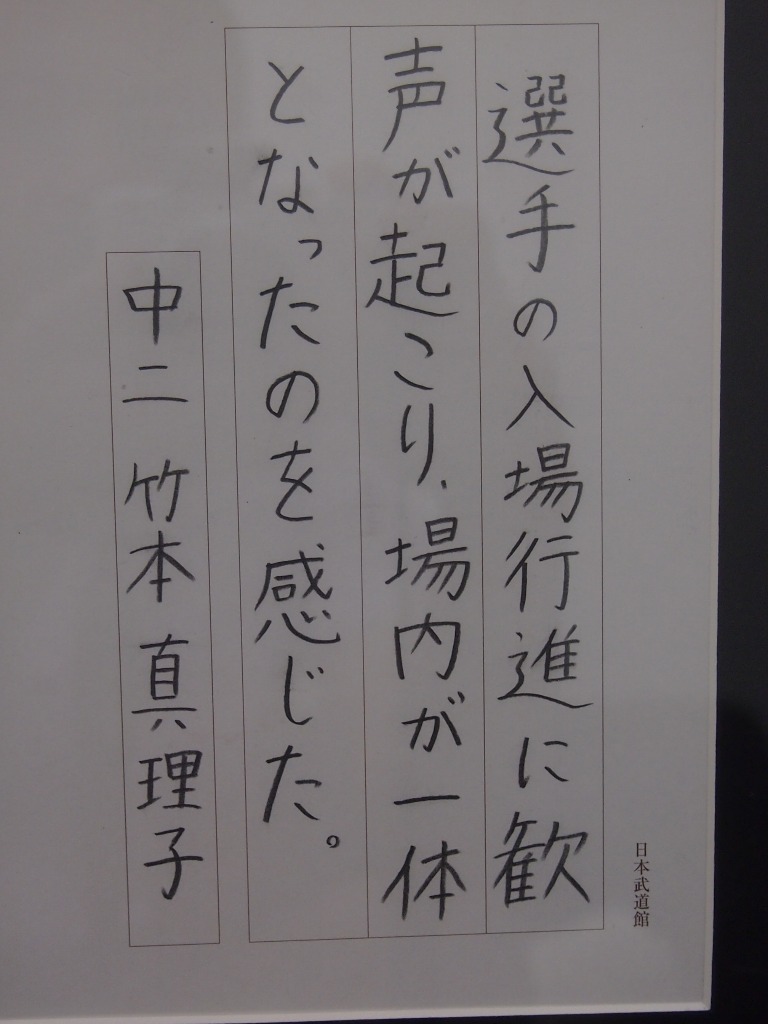 選手の入場行進に歓
声が起こり、場内が一体
となったのを感じた。
中二 竹本 真理子
日本武道館